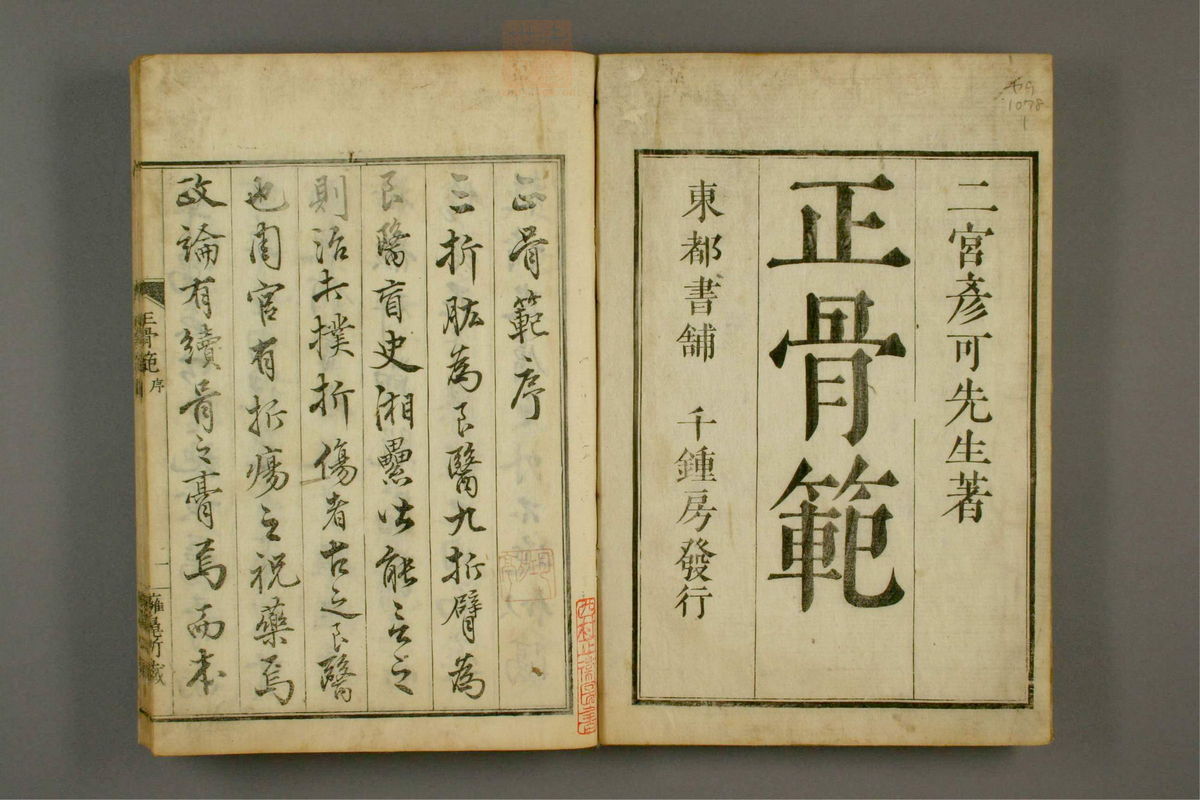 二宮彥可先生著
正骨範
東都書舗 千鍾房發行
ヤ9
1078
1
正骨範序
三折肱為良醫九折臂為
良醫盲史湘纍皆能言之
則治夫撲折傷者古之良醫
也周官有折瘍之祝藥焉
政論有續骨之膏焉而本
正骨範 序